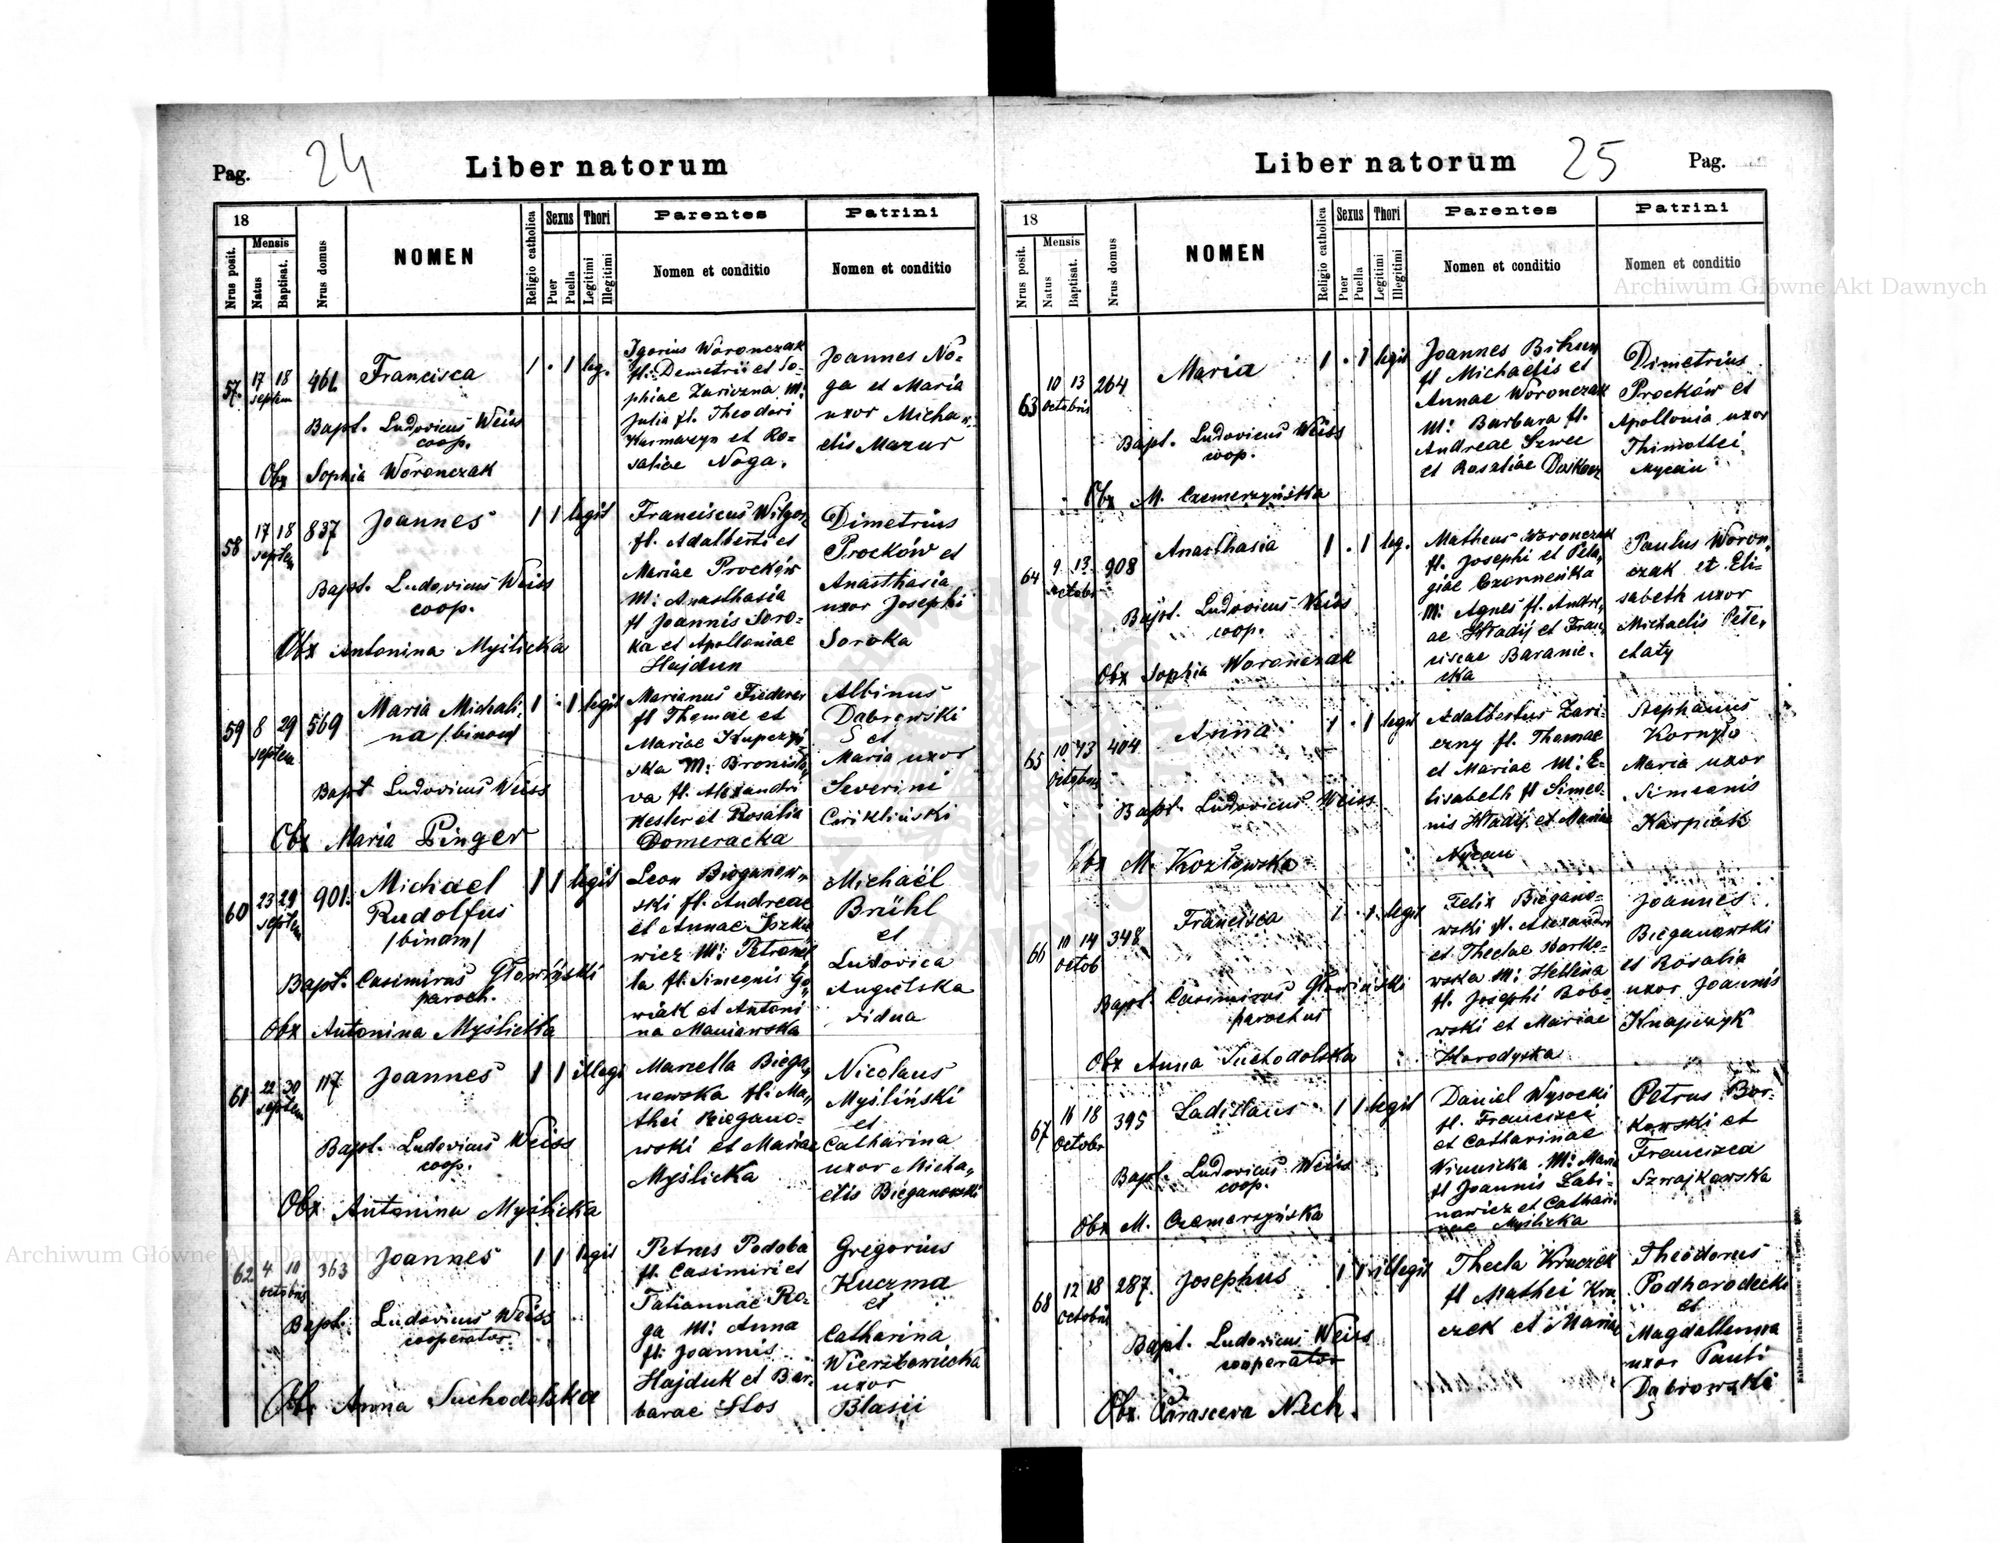 Pag. 24 Liber natorum
18
Nrus posit.
Mensis
Natus
Baptisat.
Nrus domus
NOMEN
Religio catholica
Sexus
Puer
Puella
Thori
Legitimi
Illegitimi
Parentes
Nomen et conditio
Patrini
Nomen et conditio
57. 17 18 septem 461 Francisca 1 . 1 leg.
Bapt. Ludovicus Weiss
coop.
Obx Sophia Woronczak
Igorius Woronczak
fl. Demetrii et So-
phiae Zariczna M:
Julia fl. Theodori
Harmaczyn et Ro-
saliae Noga.
Joannes No-
ga et Maria
uxor Micha
elis Mazur
58 17 18 septem 837 Joannes 1 1 legit
Bapt. Ludovicus Weiss
coop.
Obx Antonina Myślicka
Franciscus Wilgosz
fl. Adalberti et
Mariae Procków
M: Anasthasia
fl Joannis Soro-
ka et Apolloniae
Hajdun
Dimetrius
Procków et
Anasthasia
uxor Josephi
Soroka
59 8 29 septem 569 Maria Michali-
na /binom/ 1 . 1 legit
Bapt Ludovicus Weiss
Obx Maria Pinger
Marianus Fiederer
fl Thomae et
Mariae Kupczyń
ska M: Bronisła
va fl. Alexandri
Hesler et Rosalia
Domeracka
Albinus
Dąbrowski
et
Maria uxor
Severini
Cerikliński
60 23 29 septem 901. Michael
Rudolfus
/binom/ 1 1 legit
Bapt. Casimirus Głowiński
paroch.
Obx Antonina Myślicka
Leon Bieganow-
ski fl. Andreae
et Annae Iszkie
wicz M: Petronel
la fl. Simeonis Go
wiak et Antoni
na Maniawska
Michaël
Brühl
et
Ludovica
Angielska
vidua
61 22 30 septem 117 Joannes 1 1 illegi
Bapt. Ludovicus Weiss
coop.
Obx Antonina Myślicka
Marcella Biega
nowska fl: Ma
thei Biegano-
wski et Mariae
Myślicka
Nicolaus
Myśliński
et
Catharina
uxor Micha
elis Bieganowski
62 4 10 octobris 363 Joannes 1 1 legit
Bapt. Ludovicus Weiss
cooperator.
Obx Anna Suchodolska
Petrus Podoba
fl. Casimiri et
Tatiannae Ro-
ga M: Anna
fl: Joannis
Hajduk et Bar-
barae Stos
Gregorius
Kuczma
et
Catharina
Wierzbowicka
uxor
Blasii
Liber natorum 25 Pag.
18
Nrus posit.
Mensis
Natus
Baptisat.
Nrus domus
NOMEN
Religio catholica
Sexus
Puer
Puella
Thori
Legitimi
Illegitimi
Parentes
Nomen et conditio
Patrini
Nomen et conditio
63 10 13 octobris 264 Maria 1 . 1 legit
Bapt. Ludovicus Weiss
coop.
Obx M. Czemerzyńska
Joannes Bihun
fl Michaelis et
Annae Woronczak
M: Barbara fl.
Andreae Szwec
et Rosaliae
Dimetrius
Procków et
Apollonia uxor
Thimothei
Mycan
64 9 13 octobr 908 Anasthasia 1 . 1 leg.
Bapt. Ludovicus Weiss
coop.
Obx Sophia Woronczak
Matheus Woronczak
fl. Josephi et Pela
giae Czorneńka
M: Agnes fl. Andre
ae Hładij et Fran
ciscae Baranie-
cka
Paulus Woron
czak et Eli-
sabeth uxor
Michaelis Pete
chaty
65 10 13 Octobris 404 Anna 1 . 1 legit
Bapt. Ludovicus Weiss
Obx M. Kozłowska
Adalbertus Zari-
czny fl. Thomae
et Mariae M: E-
lisabeth fl Simeo
nis Hładij et Mariae
Nycan
Stephanus
Kornyło
Maria uxor
Simeonis
Karpiak
66 10 14 octob 348 Francisca 1 . 1 legit
Bapt. Casimirus Głowiński
parochus
Obx Anna Suchodolska
Felix Biegano-
wski fl. Alexandri
et Theclae Borko-
wska M: Hellena
fl. Josephi Bobo
wski et Mariae
Horodyska
Joannes
Bieganowski
et Rosalia
uxor Joannis
Knapczyk
67 16 18 Octobr 395 Ladislaus 1 1 legit
Bapt. Ludovicus Weiss
coop.
Obx M. Czemerzyńska
Daniel Wysocki
fl. Franciszci
et Catharinae
Winnicka M: Maria
fl Joannis Łabi-
nowicz et Cathari
nae Myślicka
Petrus Bor-
kowski et
Francisca
Szwajkowska
68 12 18 Octobris 287. Josephus 1 1 illegit
Bapt. Ludovicus Weiss
cooperator
Obx. Parasceva Nech.
Thecla Kruczek
fl Mathei Kru
czek et Mariae
Theodorus
Podhorodecki
et
Magdallenna
uxor Pauli
Dąbrowski
Archiwum Główne Akt Dawnych
Archiwum Główne Akt Dawnych